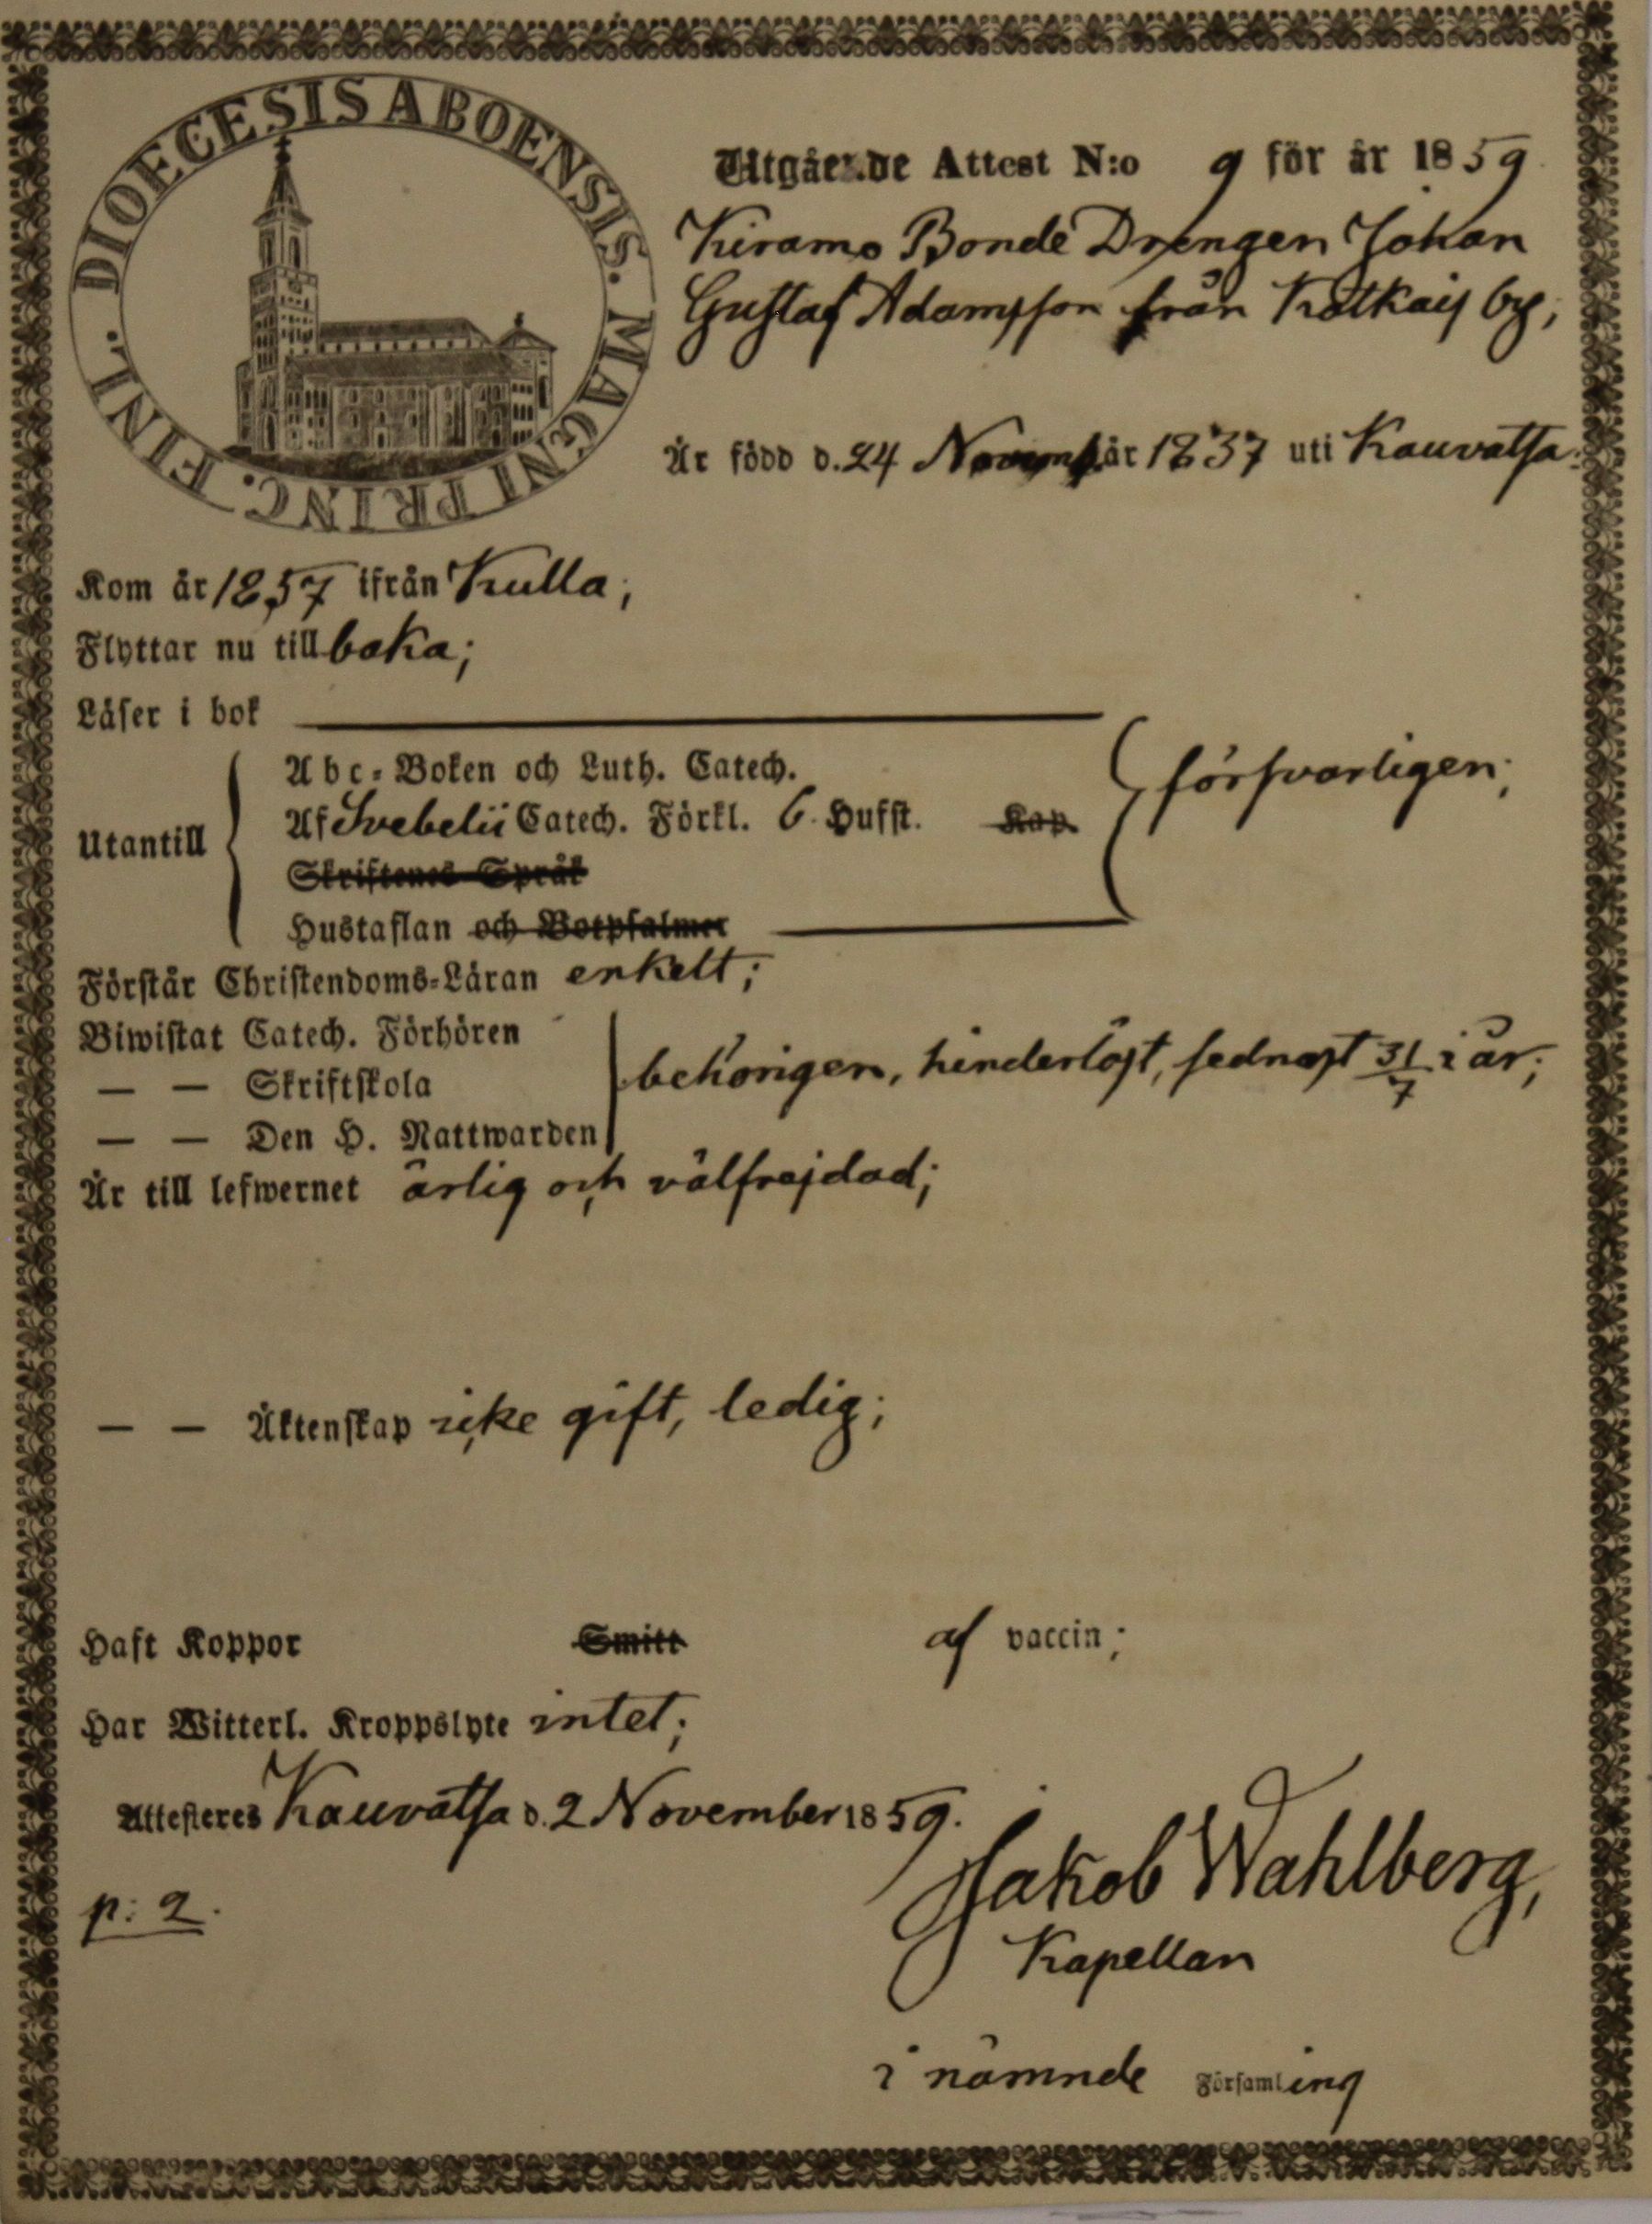 DIOECESIS ABOENSIS. MAGNI PRINC. FINL.
Utgående Attest N:o 9 för år 1859
Kiramo Bonde Drengen Johan
Gustaf Adamsson från Kotkais by;
Är född d. 24 Novemb. år 1837 uti Kauvatsa.
Kom år 1857 ifrån Kulla;
Flyttar nu till baka;
Läser i bok
Abc-Boken och Luth. Catech.
försvarligen;
Utantill
Af Svebelii Catech. Förkl. 6. Hufst. Kap.
Skriftenes Språk
Hustaflan och Botpsalmer
Förstår Christendoms-Läran enkelt;
Biwistat Catech. Förhören
— — Skriftskola
behörigen, hinderlöst, sednast 31/7 i år;
— — Den H. Nattwarden
Är till lefwernet ärlig och välfrejdad;
— — Äktenskap icke gift, ledig;
Haft Koppor Smitt af vaccin;
Har Witterl. Kroppslyte intet;
Attesteres Kauvatsa d. 2 November 1859.
Jakob Wahlberg,
p: 2.
Kapellan
i nämnde Församling